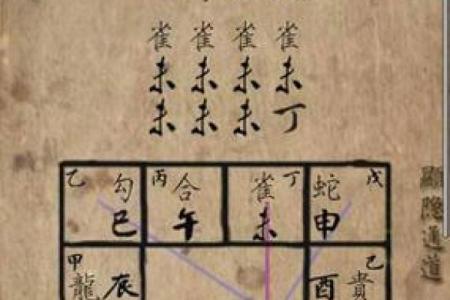 雀雀雀雀
未未未未
未未未丁
乙勾巳 丙合午 雀丁未 蛇戊申
甲龍辰 酉己貴
顯隱通道